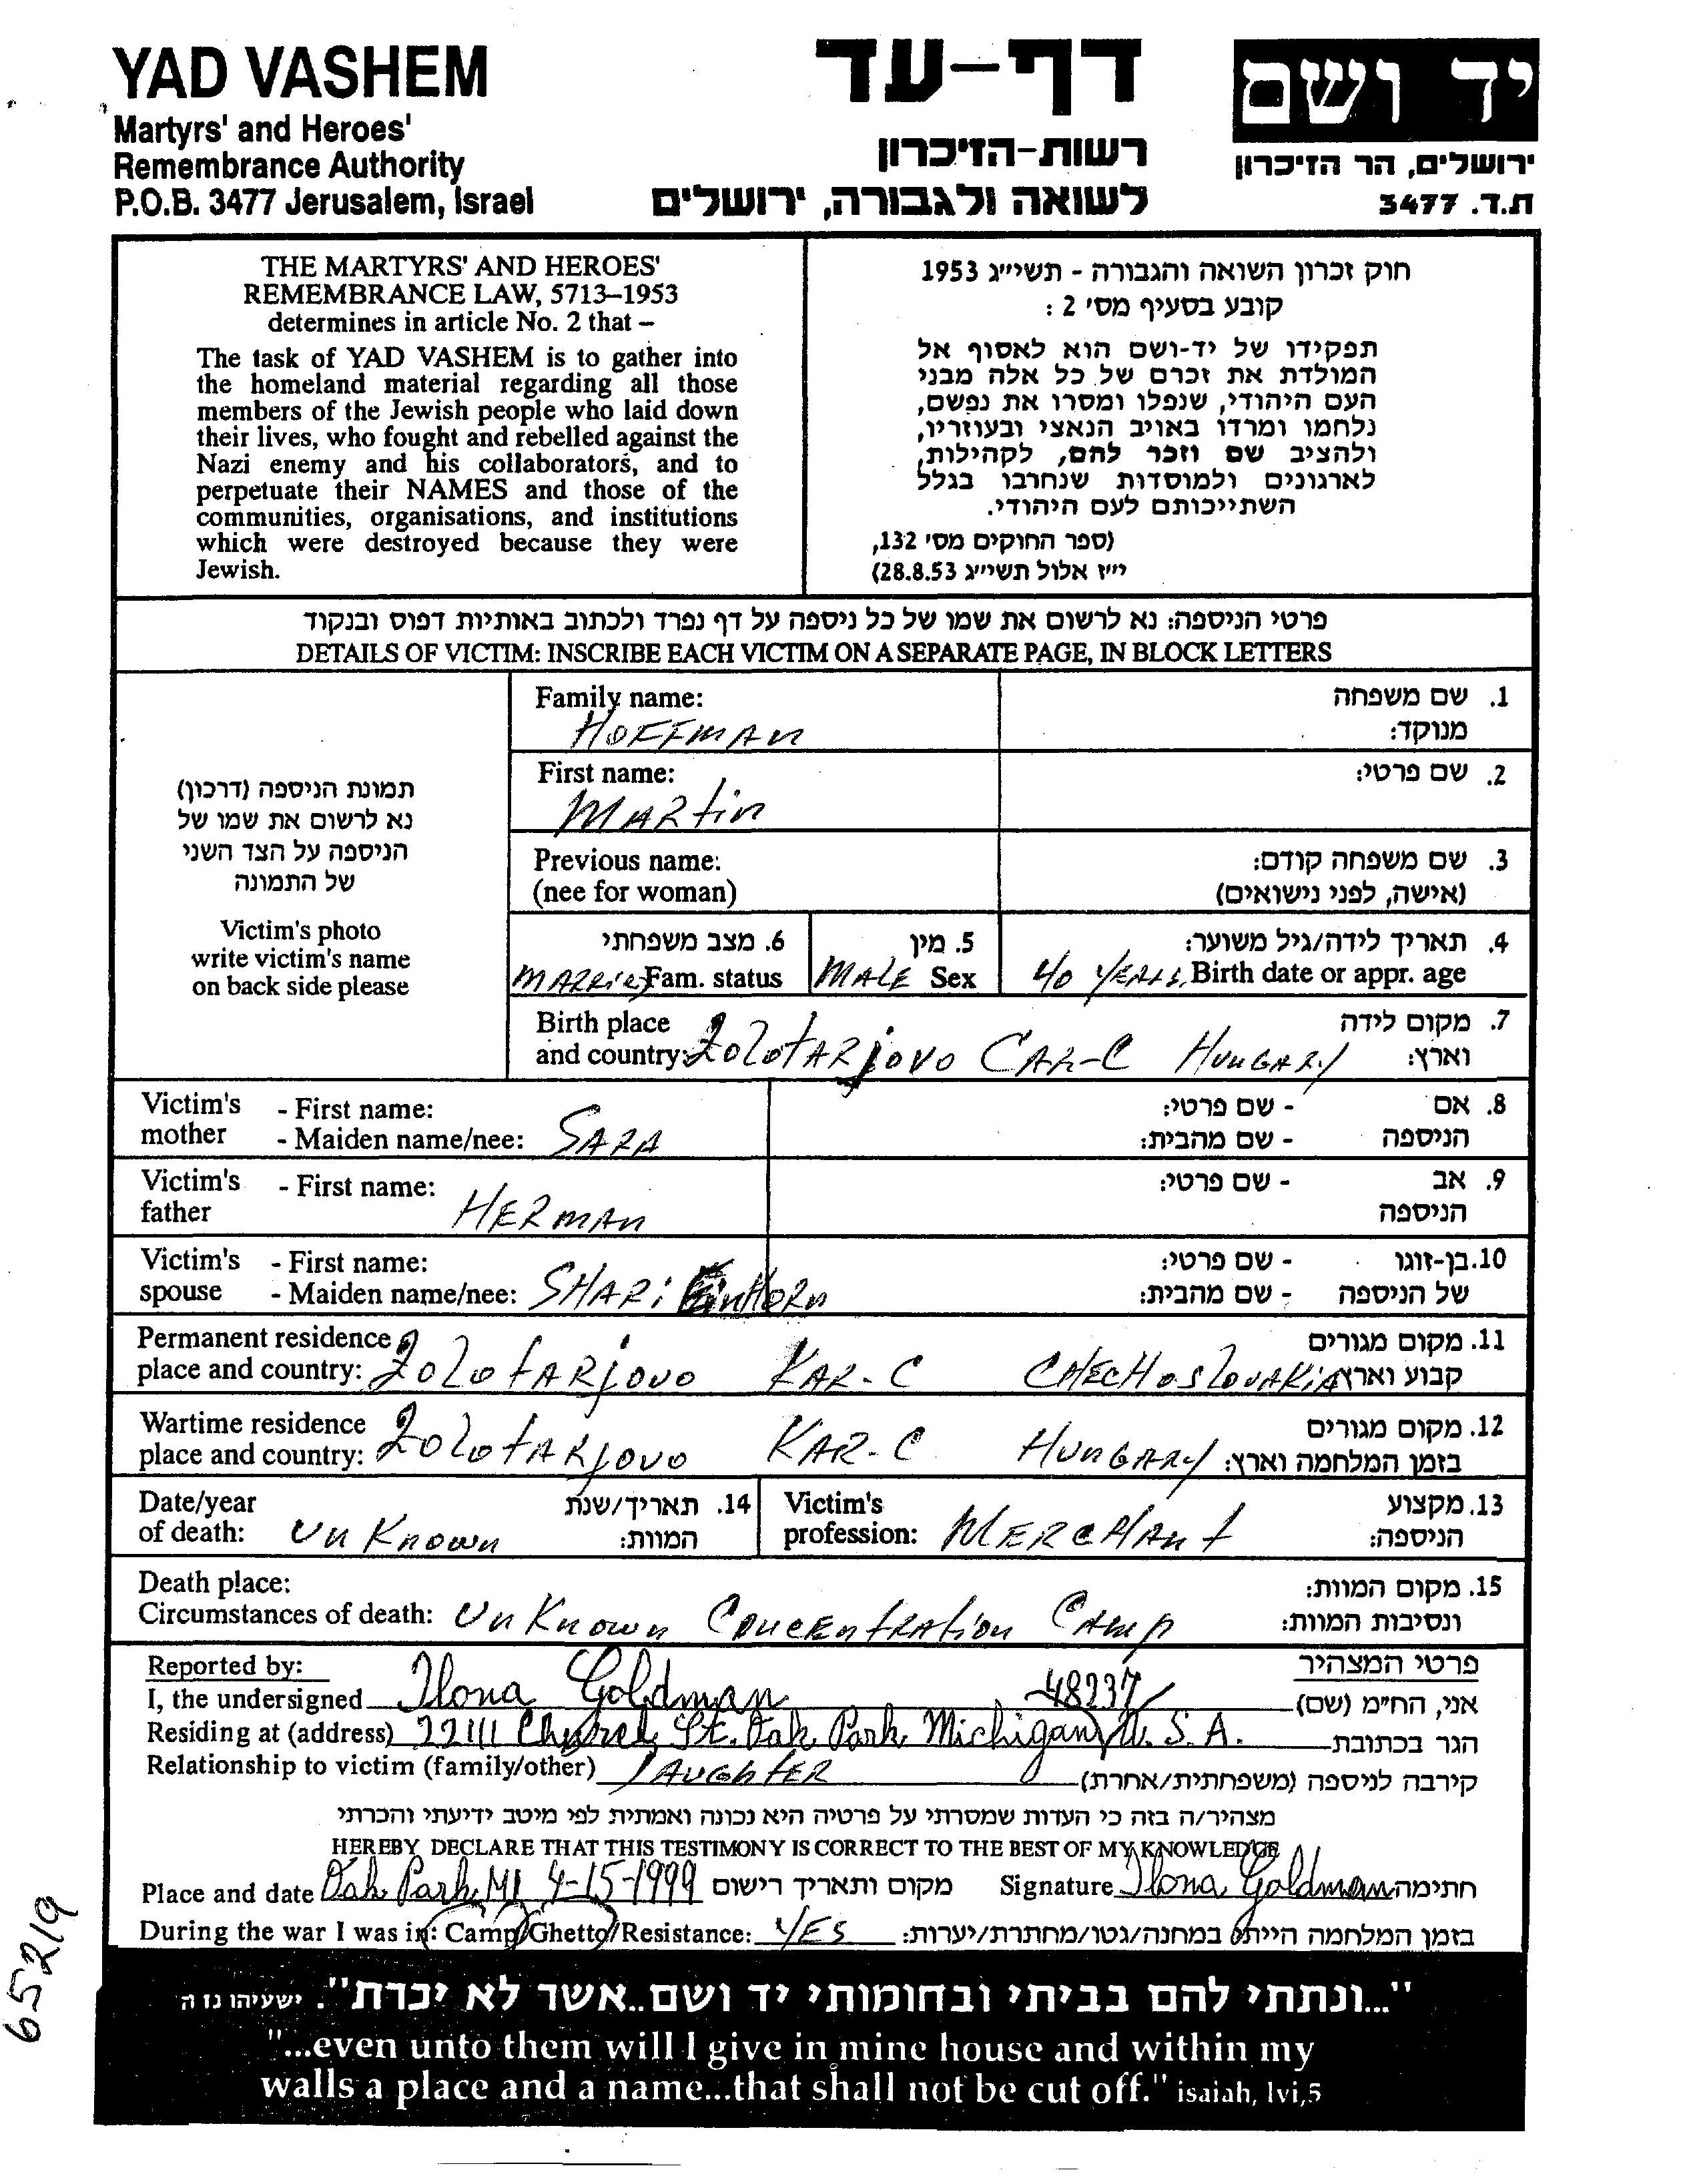 YAD VASHEM
Martyrs' and Heroes'
Remembrance Authority
P.O.B. 3477 Jerusalem, Israel
דף-עד
רשות-הזיכרון
לשואה ולגבורה, ירושלים
יד ושם
ירושלים, הר הזיכרון
ת.ד. 3477
THE MARTYRS' AND HEROES'
REMEMBRANCE LAW, 5713–1953
determines in article No. 2 that –
The task of YAD VASHEM is to gather into
the homeland material regarding all those
members of the Jewish people who laid down
their lives, who fought and rebelled against the
Nazi enemy and his collaborators, and to
perpetuate their NAMES and those of the
communities, organisations, and institutions
which were destroyed because they were
Jewish.
חוק זכרון השואה והגבורה - תשי״ג 1953
קובע בסעיף מס' 2 :
תפקידו של יד-ושם הוא לאסוף אל
המולדת את זכרם של כל אלה מבני
העם היהודי, שנפלו ומסרו את נפשם,
נלחמו ומרדו באויב הנאצי ובעוזריו,
ולהציב שם וזכר להם, לקהילות,
לארגונים ולמוסדות שנחרבו בגלל
השתייכותם לעם היהודי.
(ספר החוקים מס' 132,
י״ז אלול תשי״ג 28.8.53)
פרטי הניספה: נא לרשום את שמו של כל ניספה על דף נפרד ולכתוב באותיות דפוס ובנקוד
DETAILS OF VICTIM: INSCRIBE EACH VICTIM ON A SEPARATE PAGE, IN BLOCK LETTERS
תמונת הניספה (דרכון)
נא לרשום את שמו של
הניספה על הצד השני
של התמונה
Victim's photo
write victim's name
on back side please
Family name: 1. שם משפחה
HOFFMAN מנוקד:
First name: 2. שם פרטי:
MARtin
Previous name: 3. שם משפחה קודם:
(nee for woman) (אישה, לפני נישואים)
6. מצב משפחתי 5. מין 4. תאריך לידה/גיל משוער:
MARRiED Fam. status MALE Sex 40 YEARS, Birth date or appr. age
Birth place 7. מקום לידה
and country: ZOLOTARjOVO CAR-C HUNGARY וארץ:
Victim's - First name: - שם פרטי: 8. אם
mother - Maiden name/nee: SARA - שם מהבית: הניספה
Victim's - First name: - שם פרטי: 9. אב
father HERMAN הניספה
Victim's - First name: - שם פרטי: 10. בן-זוגו
spouse - Maiden name/nee: SHARi EinHoRn - שם מהבית: של הניספה
Permanent residence 11. מקום מגורים
place and country: ZOLOtARjOVO KAR-C CHECHOSLOVAKiA קבוע וארץ
Wartime residence 12. מקום מגורים
place and country: ZOLOtARjOVO KAR-C HUNGARY בזמן המלחמה וארץ:
Date/year 14. תאריך/שנת Victim's 13. מקצוע
of death: UnKnown המוות: profession: MERCHAnt הניספה:
Death place: 15. מקום המוות:
Circumstances of death: UnKnown COnCEntRAtion CAMp ונסיבות המוות:
Reported by: פרטי המצהיר
I, the undersigned Ilona Goldman 48237 אני, הח״מ (שם)
Residing at (address) 22111 Church St. Oak Park Michigan, U.S.A. הגר בכתובת
Relationship to victim (family/other) DAUGHtER קירבה לניספה (משפחתית/אחרת)
מצהיר/ה בזה כי העדות שמסרתי על פרטיה היא נכונה ואמתית לפי מיטב ידיעתי והכרתי
HEREBY DECLARE THAT THIS TESTIMONY IS CORRECT TO THE BEST OF MY KNOWLEDGE
Place and date Oak Park, MI 4-15-1999 מקום ותאריך רישום Signature Ilona Goldman חתימה
During the war I was in: Camp/Ghetto/Resistance: YES בזמן המלחמה הייתי במחנה/גטו/מחתרת/יערות:
65219
"...ונתתי להם בביתי ובחומותי יד ושם..אשר לא יכרת". ישעיהו נז ה
"...even unto them will I give in mine house and within my
walls a place and a name...that shall not be cut off." isaiah, lvi,5